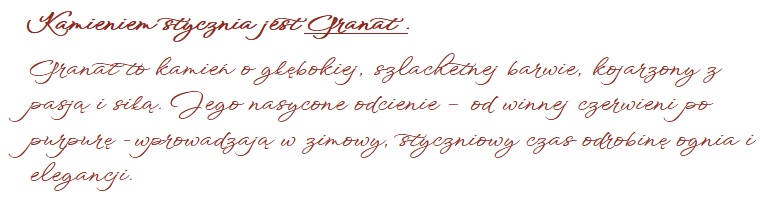 Kamieniem stycznia jest Granat .
Granat to kamień o głębokiej, szlachetnej barwie, kojarzony z
pasją i siłą. Jego nasycone odcienie – od winnej czerwieni po
purpurę -wprowadzają w zimowy, styczniowy czas odrobinę ognia i
elegancji.